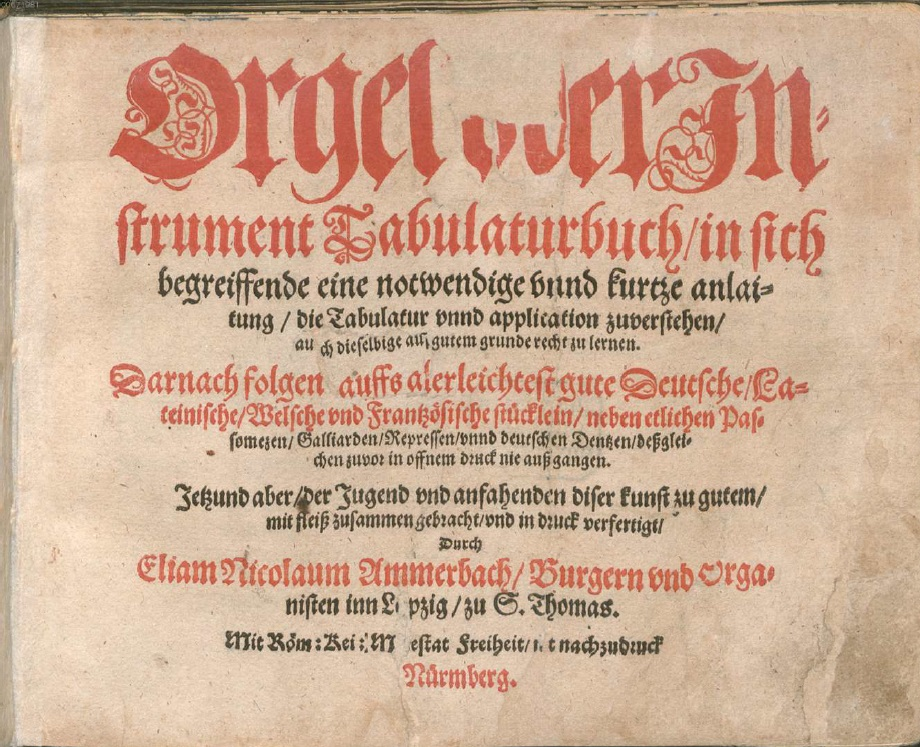 Orgel oder In-
strument Tabulaturbuch/ in sich
begreiffende eine notwendige vnnd kurtze anlai-
tung / die Tabulatur vnnd application zuverstehen/
auch dieselbige auß gutem grunde recht zu lernen.
Darnach folgen auffs alerleichtest gute Deutsche/ La-
teinische/ Welsche vnd Frantzösische stücklein/ neben etlichen Pas-
somezen/ Galliarden/ Repressen/ vnnd deutschen Dentzen/ deßglei-
chen zuvor in offnem druck nie außgangen.
Jetzund aber/ der Jugend vnd anfahenden diser kunst zu gutem/
mit fleiß zusammen gebracht/ vnd in druck verfertigt/
Durch
Eliam Nicolaum Ammerbach/ Burgern vnd Orga-
nisten inn Leipzig / zu S. Thomas.
Mit Röm: Kei: M estat Freiheit/ nachzudruck
Nürmberg.